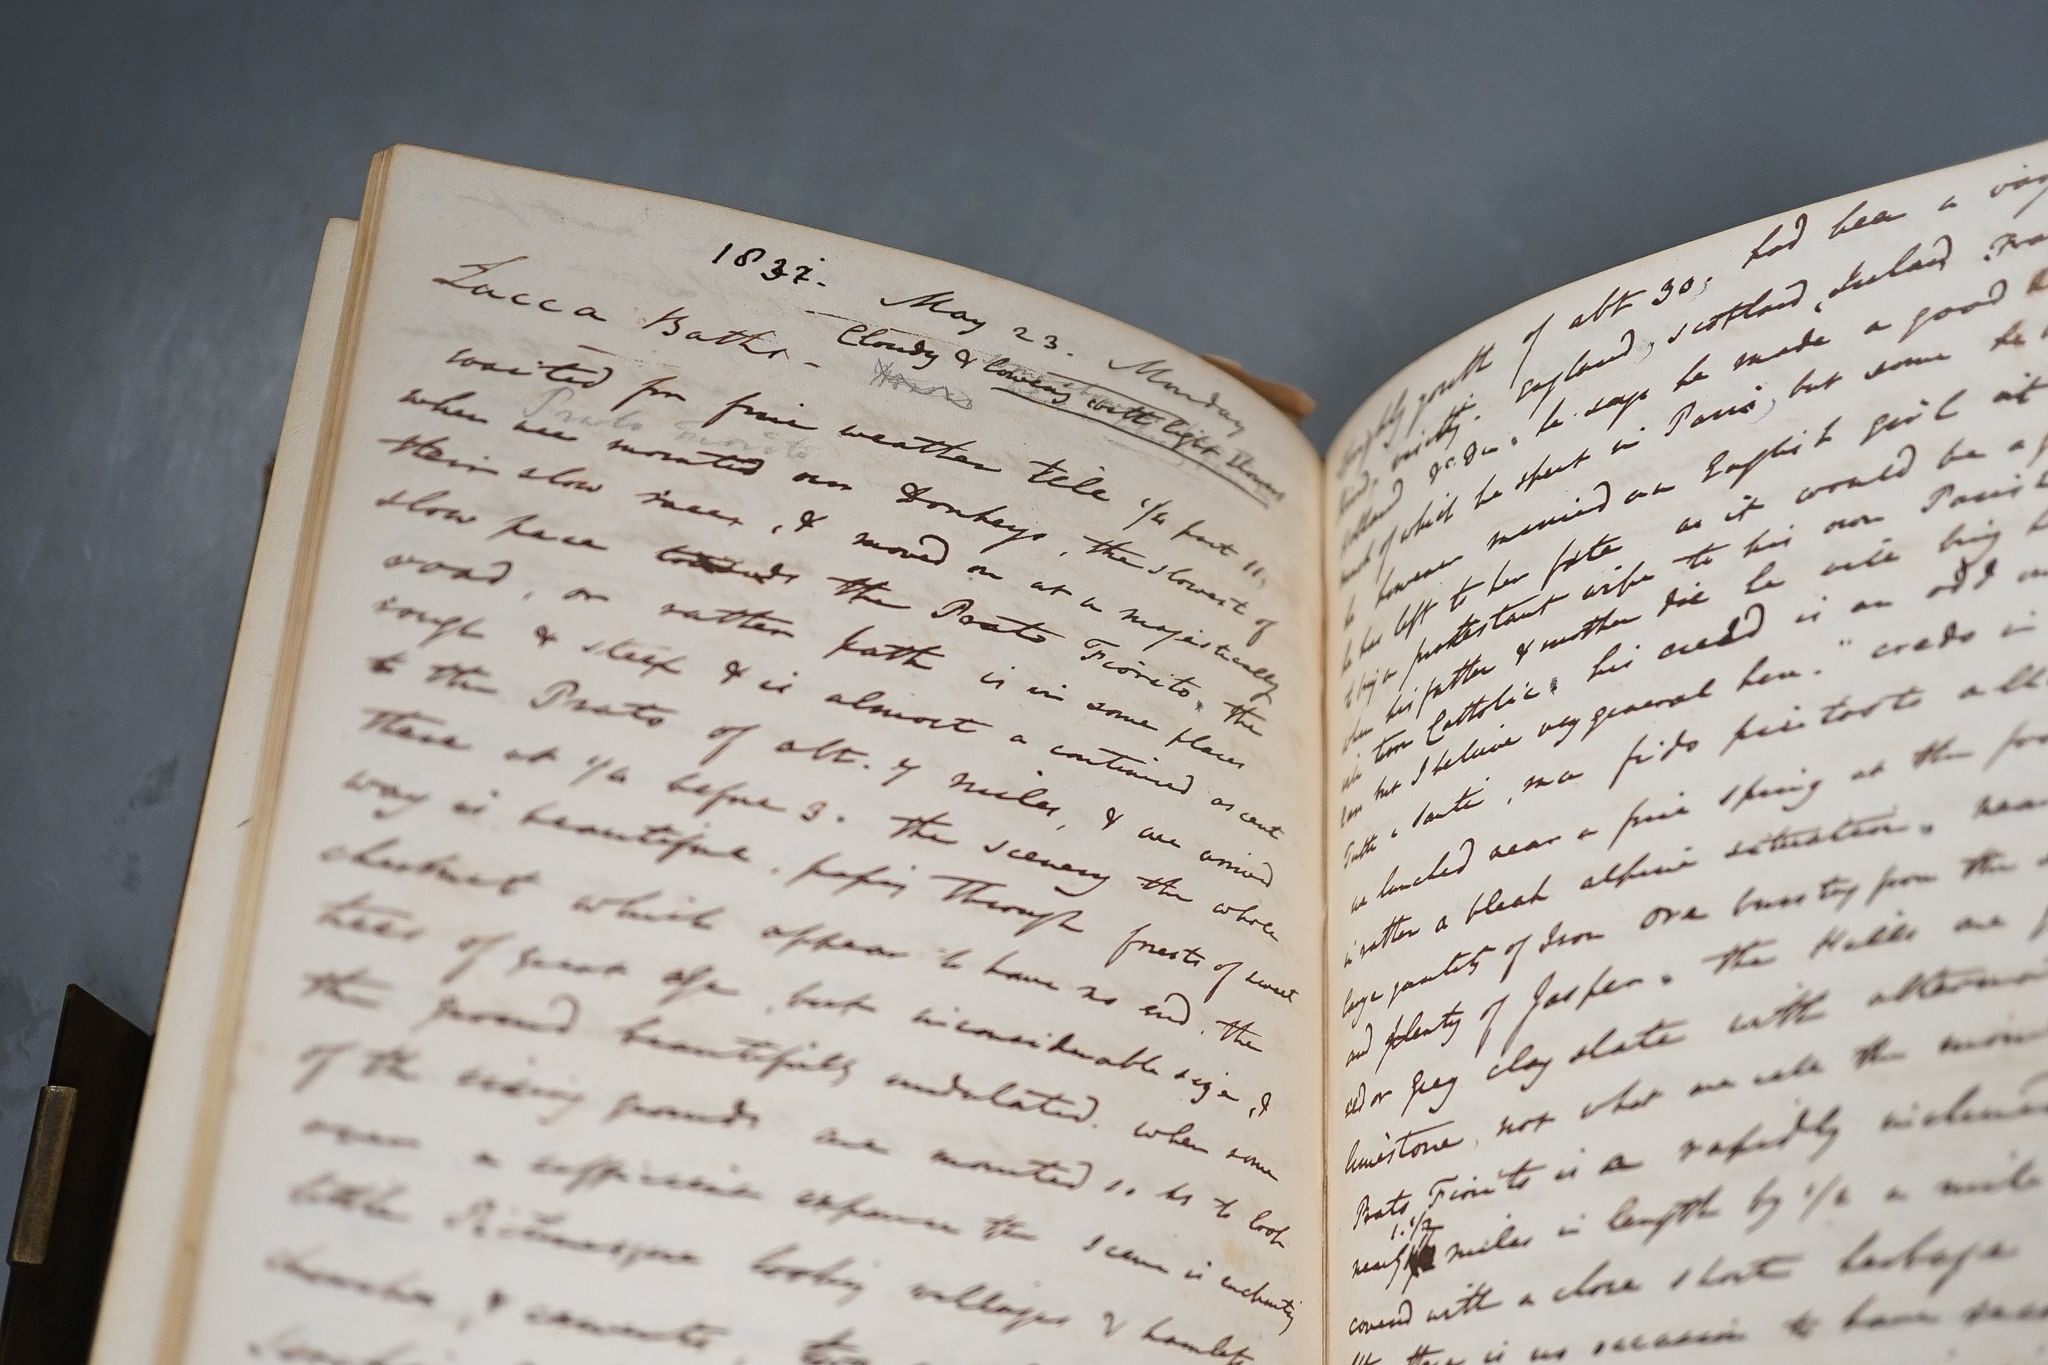 1837. May 23. Monday
Lucca Baths - Cloudy & lowery with light showers
Prato Fiorito
waited for fine weather till 1/4 past 11,
when we mounted our donkeys, the slowest of
their slow race, & moved on at a majestically
slow pace towards the Prato Fiorito. the
road, or rather path is in some places
rough & steep & is almost a continued ascent
to the Prato of abt. 7 miles, & we arrived
there at 1/4 before 3. The scenery the whole
way is beautiful, passing through forests of sweet
chestnut which appear to have no end, the
trees of great age, but inconsiderable size, &
the ground beautifully undulated. when some
of the rising grounds are mounted so as to look
over a sufficient expanse the scene is enchanting
little Picturesque looking villages & hamlets
churches, & convents,
youth of abt 30, had been a
England, Scotland, Ireland
Holland &c. &c. he says he made a good
much of which he spent in Paris, but some
he however married an English girl at
he has left to her fate as it would be a
to bring a protestant wife to his own
when his father & mother die he will bring
Catholic. his creed is an odd
but I believe very general here. "credo in
Santi, ma fido
we lunched near a fine spring at the
in rather a bleak alpine situation. near
large quantity of Iron ore bursting from the
and plenty of Jasper. The Hills are
red or grey clay slate with
limestone, not what we call the
Prato Fiorito is a rapidly inclined
nearly 1.1/2 miles in length by 1/2 a mile
covered with a close short herbage
there is no occasion to have